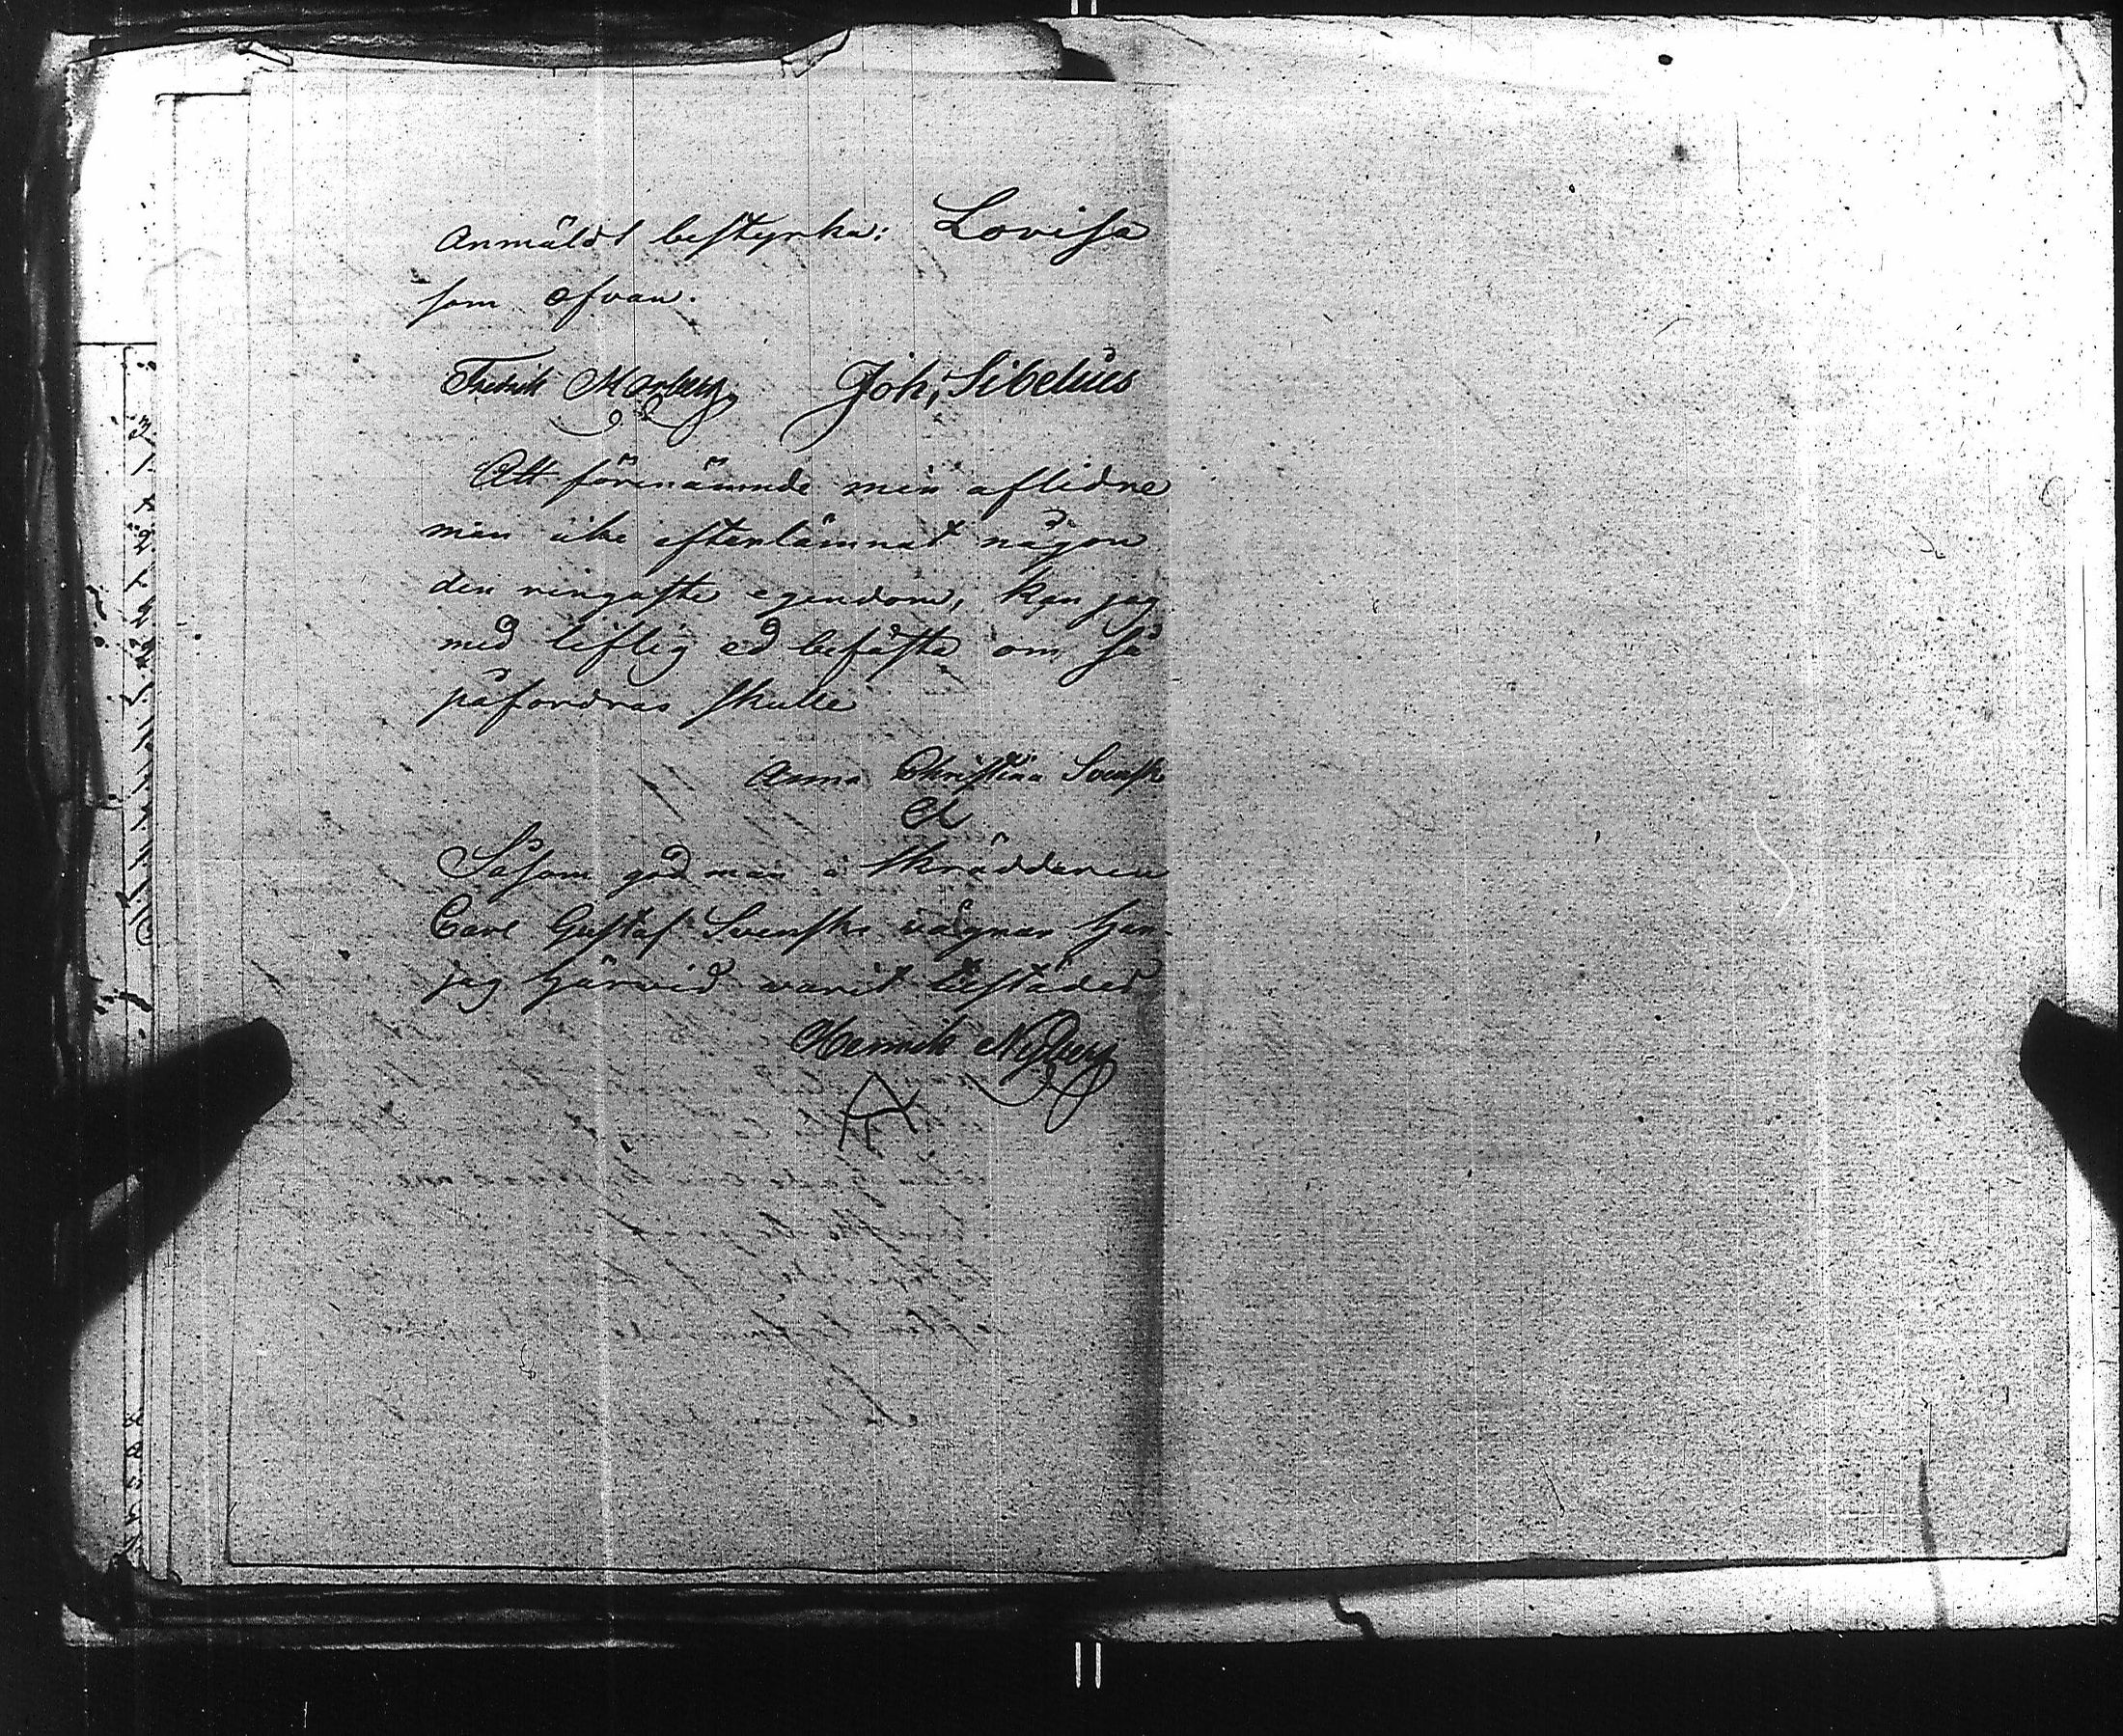 Anmäldt bestyrka: Lovisa
som ofvan.
Fredrik Joh, Sibelius
Att förenämnde min aflidne
man icke efterlämnat någon
den ringaste egendom, kan jag
med liflig ed befästa om så
påfordras skulle
Anna Christina Svensk
Såsom god man å Skräddaren
Carl Gustaf Svensks vägnar har
jag härvid varit tillstädes
Henrik Nyberg